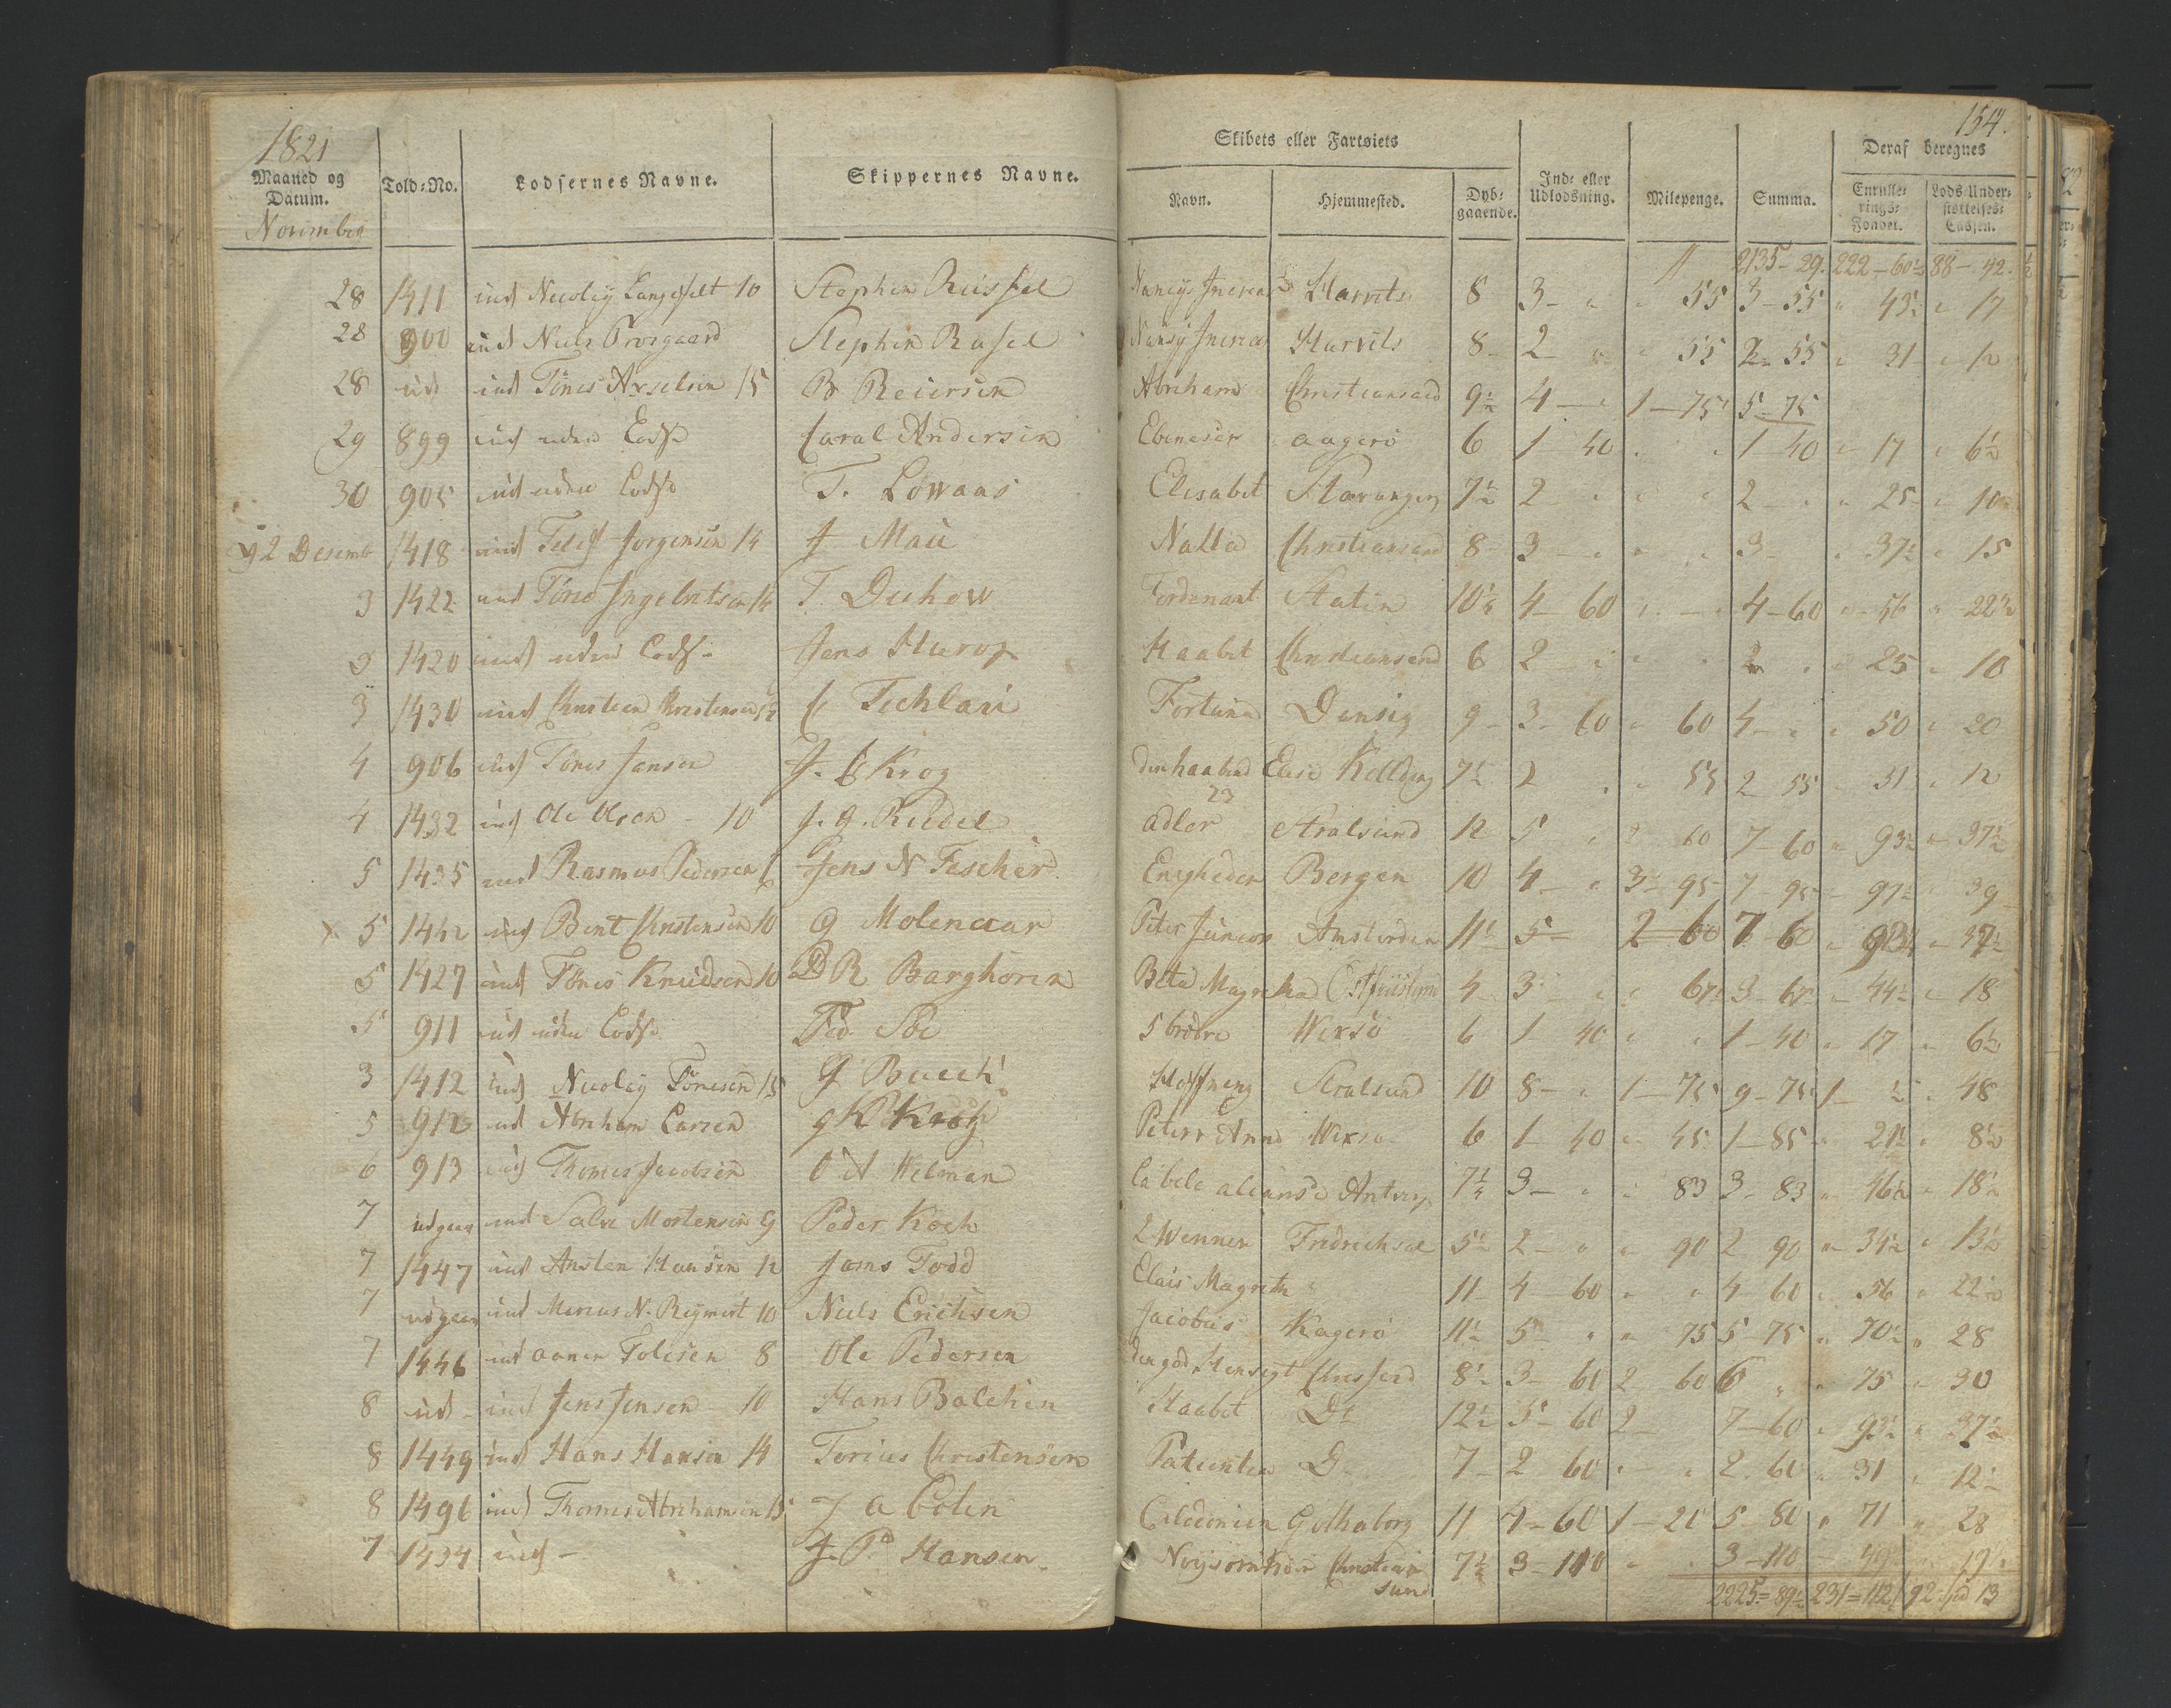 1821
154.
Maaned og Datum.
Told-No.
Lodsernes Navne.
Skippernes Navne.
Skibets eller Fartøiets
Navn.
Hjemmested.
Dybgaaende.
Ind- eller Udlodsning.
Milepenge.
Summa.
Deraf beregnes
Enrullerings-Fondet.
Lods-Understøttelses-Cassen.
November
2135 - 29. 222 - 60½ 88 - 42.
28 1411 ind 10 Stephen Russel Harvits 8 3 - " " 55 3 - 55 " 43½ " 17
28 900 ud Niels Stephen Rusel Harvits 8 - 2 " " 55 2 - 55 " 31 - " 12
28 ud ind Tönes Axselsen 15 B Reiersen Abraham Christiansand 9½ 4 - " 1 - 75 5 - 75
29 899 ud uden Lods Caral Andersen Ebeneser aagerö 6 1 40 " " 1 - 40 " 17 " 6½
30 905 ud uden Lods T. Lowaas Elisabet Stavanger 7½ 2 - " " " 2 - " " 25 - " 10
d 2 Desemb 1418 ind Jorgensen 14 J Mau Christiansand 8 - 3 - " " " 3 - " 37½ " 15
3 1422 ind Töres Ingebretsen 14 T. Duhow Ferdenant Statin 10½ 4 - 60 " - " 4 - 60 " - 56 " 22½
3 1420 ind uden Lods Jens Haabet Christiansand 6 2 - " " " 2 " " 25 " 10
3 1430 ind Christen Christensen 12 C Techlari Fortuna Dansig 9 - 3 - 60 " 60 4 - " " 50 " 20
4 906 ud Tönes Jensen J. Krog Kolding 7½ 2 " " 55 2 55 " 31 " 12
4 1432 ind Ole Olsen - 10 J. G. Riedel Adler Stralsund 12 5 " 2 60 7 - 60 " 93½ " 37½
5 1435 ind Rasmus Pedersen Jens N Fescher Enigheden Bergen 10 4 - " 3 - 95 7 - 95 - 97½ " 39
x 5 1442 ind Bent Christensen 10 G Molenaar Peter Juneor Amsterdam 11½ 5 - 2 60 7 - 60 " 93½ " 37½
5 1427 ind Tönes Knudsen 10 D R Barghoren Beta Magretha Ostfriisland 4 3 " " " 67½ 3 - 67½ " 44½ " 18
5 911 ud uden Lods 5 brödre 6 1 40 " " 1 - 40 " 17 " 6½
3 1412 ind Tönesen 15 G Bueck Hoffneng Stralsund 10 8 - " 1 - 75 9 - 75 1 - ½ " 48
5 912 ud Abraham Larsen Peter Anna 6 1 40 " 45 1 - 85 " 21½ " 8½
6 913 ud Thomes Jacobsen O A Welman la bele aleanse Antverp 7½ 3 - " " 83 3 - 83 " 46½ " 18½
7 udgaar ind Salve Mortensen 9 Peder Koch 2 Wenner Fredrichsal 5½ 2 - " " 90 2 90 " 34½ " 13½
7 1447 ind Ansten Hansen 12 Jams Todd Elais Magreth 11 4 60 " " 4 60 " 56 " 22½
7 udgaar ind Marius N. Reymert 10 Niels Erichsen Jacobus Kagerö 11½ 5 - " " 75 5 75 " 70½ " 28
7 1446 ind aanen Tolesen 8 Ole Pedersen den god Hensegt 8½ 3 - 60 2 60 6 " " 75 " 30
8 ud ind Jens Jensen 10 Hans Balchen Haabet Do 12½ 5 - 60 2 - 7 - 60 " 93½ " 37½
8 1449 ind Hans Hansen 14 Torius Christensen Patienten D. 7 - 2 60 " " 2. 60 " 31 " 12½
8 1496 ind Thomes Abrahamsen 15 J a Colen Caledonien Gothaborg 11 4 - 60 1 - 20 5 - 80 " 71 " 28
7 1434 ind - J. P. Hansen Christiansund 7½ 3 - 110 " " 3 - 110 49 19½
2225 = 89½ 231 = 112½ 92 13